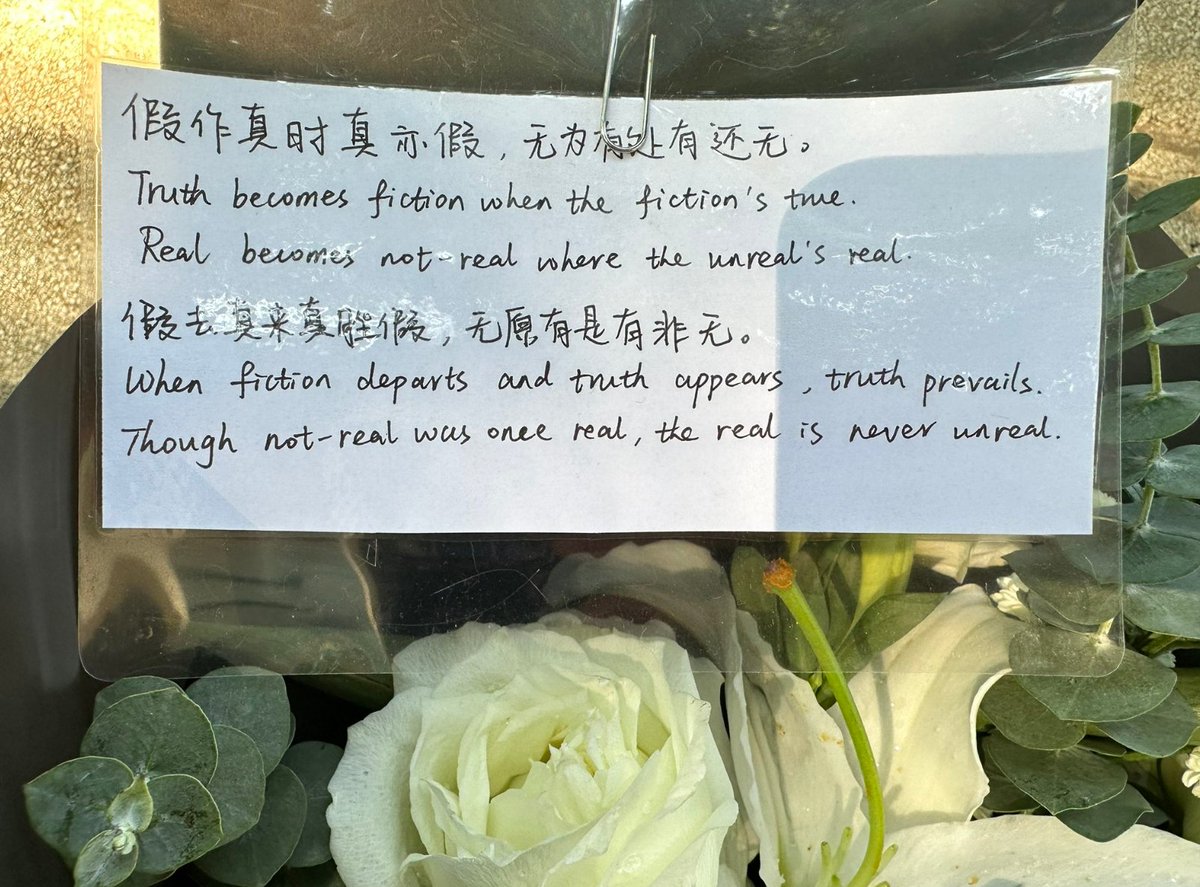 假作真时真亦假，无为有处有还无。
Truth becomes fiction when the fiction's true.
Real becomes not-real where the unreal's real.
假去真来真胜假，无原有是有非无。
When fiction departs and truth appears, truth prevails.
Though not-real was once real, the real is never unreal.